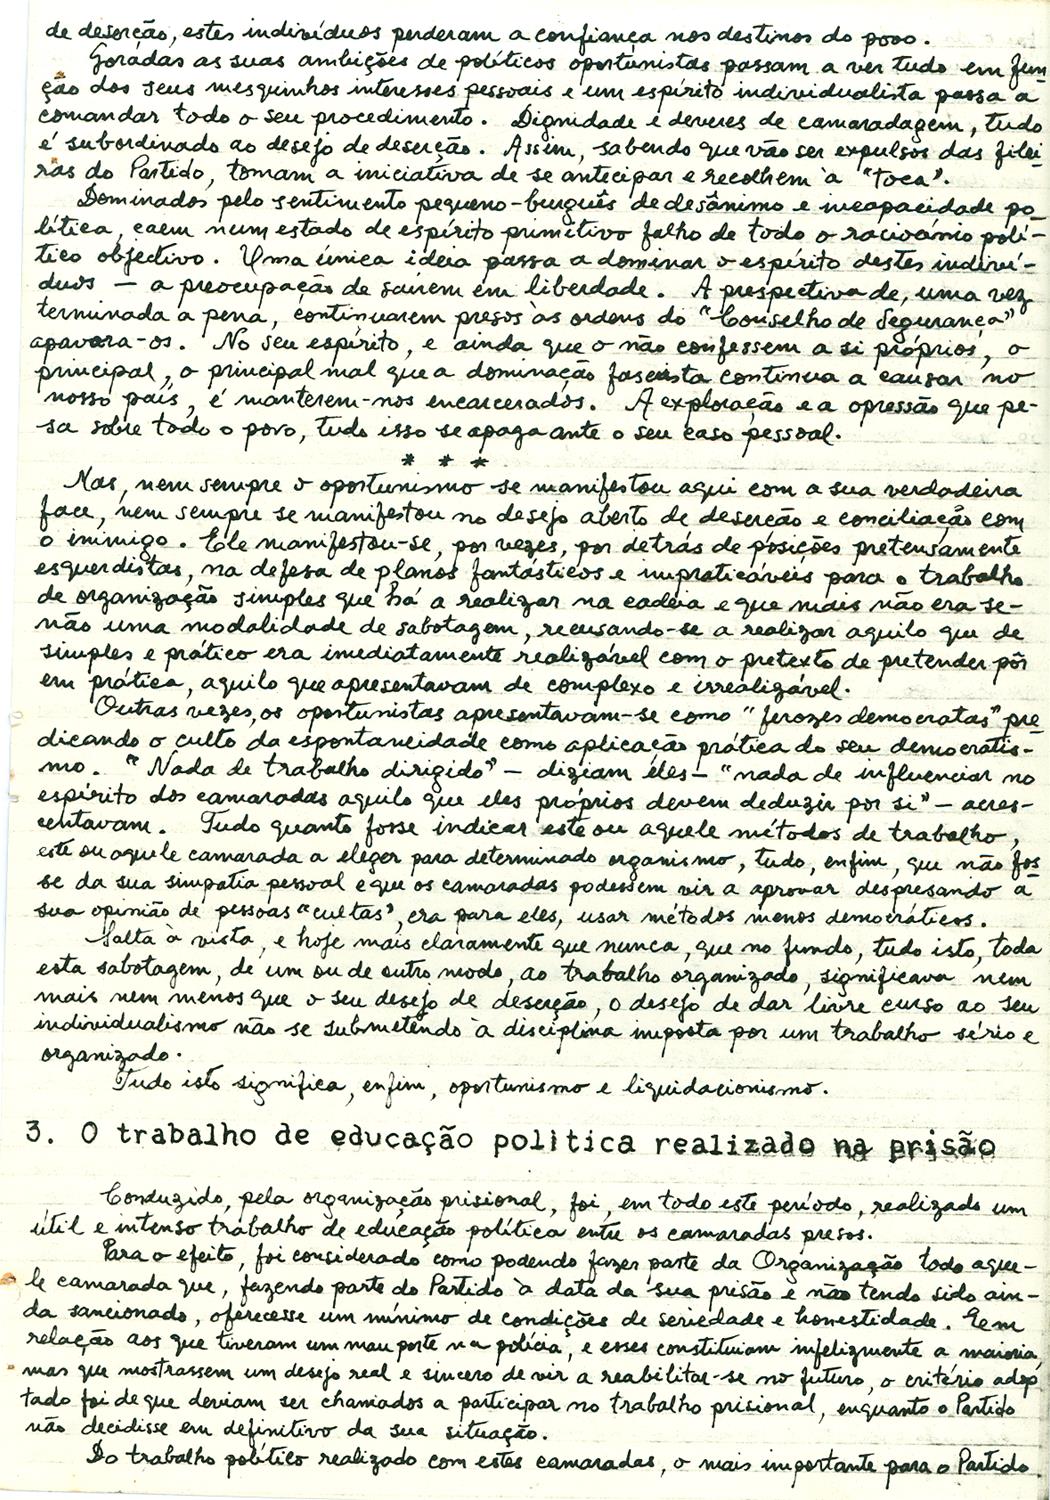 de deserção, estes indivíduos perderam a confiança nos destinos do povo.
Goradas as suas ambições de políticos oportunistas passam a ver tudo em fun
ção dos seus mesquinhos interesses pessoais e um espírito individualista passa a
comandar todo o seu procedimento. Dignidade e deveres de camaradagem, tudo
é subordinado ao desejo de deserção. Assim, sabendo que vão ser expulsos das filei
ras do Partido, tomam a iniciativa de se antecipar e recolhem à "toca".
Dominados pelo sentimento pequeno-burguês de desânimo e incapacidade po
lítica, caem num estado de espírito primitivo falho de todo o raciocínio polí-
tico objectivo. Uma única ideia passa a dominar o espírito destes indiví-
duos — a preocupação de saírem em liberdade. A prespectiva de, uma vez
terminada a pena, continuarem presos às ordens do "Conselho de Segurança"
apavora-os. No seu espírito, e ainda que o não confessem a si próprios, o
principal, o principal mal que a dominação fascista continua a causar no
nosso país, é manterem-nos encarcerados. A exploração e a opressão que pe-
sa sôbre todo o povo, tudo isso se apaga ante o seu caso pessoal.
* * *
Mas, nem sempre o oportunismo se manifestou aqui com a sua verdadeira
face, nem sempre se manifestou no desejo aberto de deserção e conciliação com
o inimigo. Ele manifestou-se, por vezes, por detrás de posições pretensamente
esquerdistas, na defesa de planos fantásticos e impraticáveis para o trabalho
de organização simples que há a realizar na cadeia e que mais não era se-
não uma modalidade de sabotagem, recusando-se a realizar aquilo que de
simples e prático era imediatamente realizável com o pretexto de pretender pôr
em prática, aquilo que apresentavam de complexo e irrealizável.
Outras vezes, os oportunistas apresentavam-se como "ferozes democratas" pre
dicando o culto da espontaneidade como aplicação prática do seu democratis-
mo. "Nada de trabalho dirigido" — diziam êles — "nada de influenciar no
espírito dos camaradas aquilo que eles próprios devem deduzir por si" — acres-
centavam. Tudo quanto fosse indicar este ou aquele métodos de trabalho,
este ou aquele camarada a eleger para determinado organismo, tudo, enfim, que não fos
se da sua simpatia pessoal e que os camaradas podessem vir a aprovar despresando a
sua opinião de pessoas "cultas", era para eles, usar métodos menos democráticos.
Salta à vista, e hoje mais claramente que nunca, que no fundo, tudo isto, toda
esta sabotagem, de um ou de outro modo, ao trabalho organizado, significava nem
mais nem menos que o seu desejo de deserção, o desejo de dar livre curso ao seu
individualismo não se submetendo à disciplina imposta por um trabalho sério e
organizado.
Tudo isto significa, enfim, oportunismo e liquidacionismo.
3. O trabalho de educação política realizado na prisão
Conduzido, pela organização prisional, foi, em todo este período, realizado um
útil e intenso trabalho de educação política entre os camaradas presos.
Para o efeito, foi considerado como podendo fazer parte da Organização todo aque-
le camarada que, fazendo parte do Partido à data da sua prisão e não tendo sido ain-
da sancionado, oferecesse um mínimo de condições de seriedade e honestidade. E em
relação aos que tiveram um mau porte na polícia, e esses constituiam infelizmente a maioria,
mas que mostrassem um desejo real e sincero de vir a reabilitar-se no futuro, o critério adop
tado foi de que deviam ser chamados a participar no trabalho prisional, enquanto o Partido
não decidisse em definitivo da sua situação.
Do trabalho político realizado com estes camaradas, o mais importante para o Partido